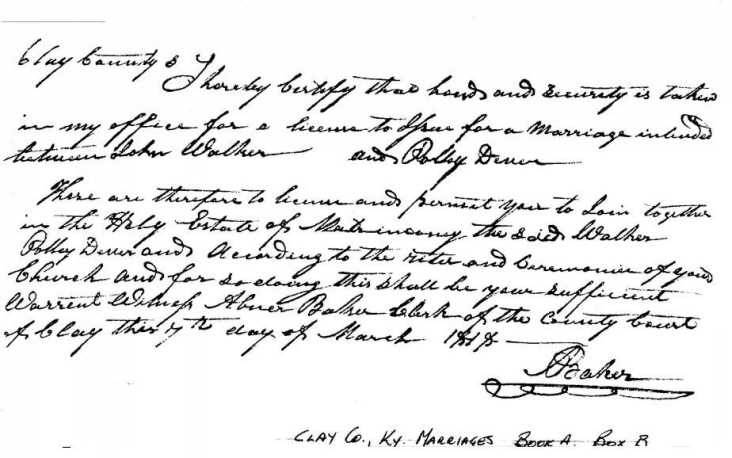 Clay County s
I hereby Certify that bond and security is taken
in my office for a license to Issue for a Marriage intended
between John Walker and Polly Dever
These are therefore to licence and permit you to Join together
in the Holy Estate of Matrimony the said Walker
Polly Dever and According to the rites and Ceremonies of your
Church and for so doing this shall be your sufficient
Warrent Witness Abner Baker Clerk of the County Court
of Clay this 7th day of March 1818
ABaker
CLAY CO., KY. MARRIAGES BOOK A. BOX